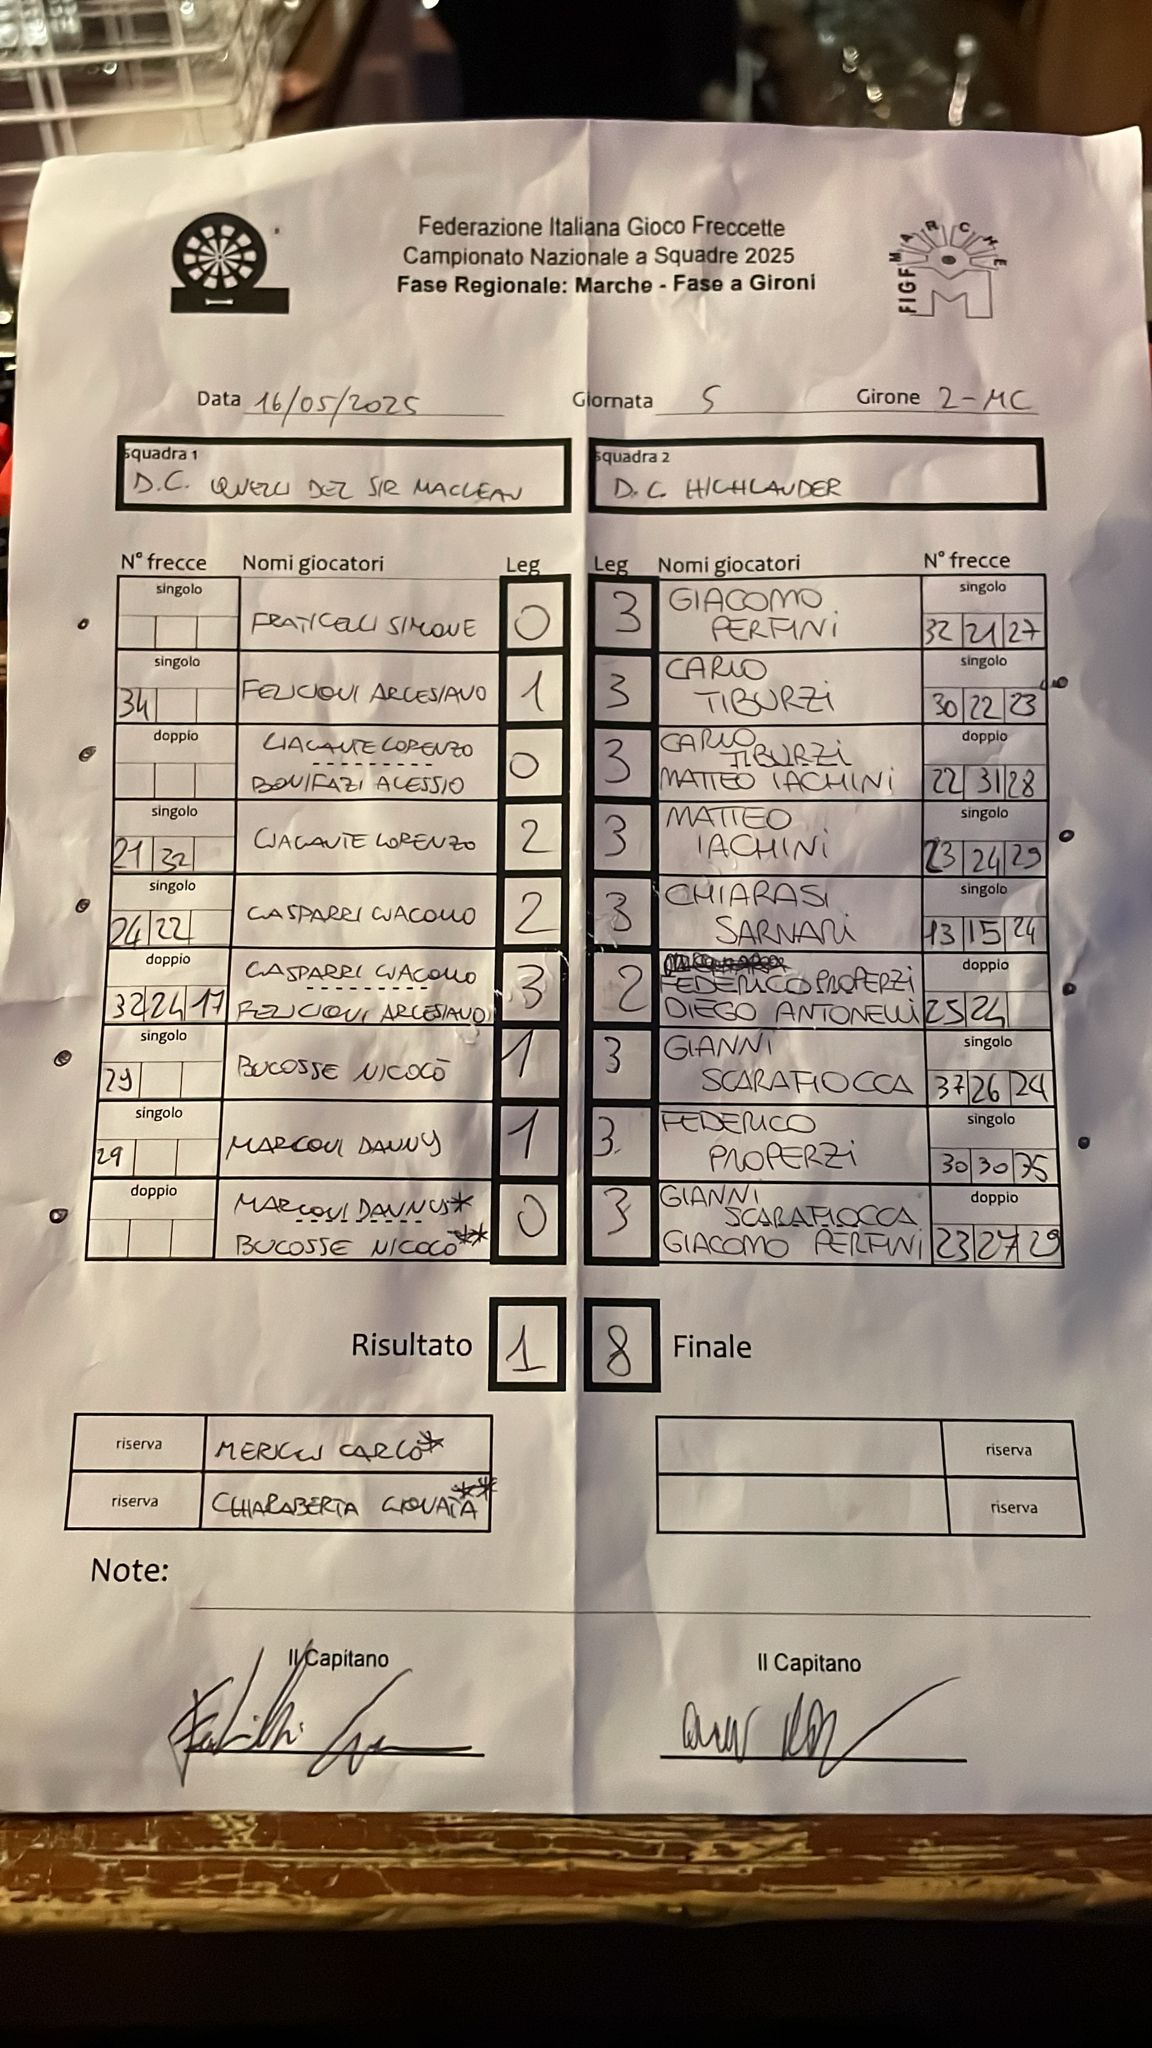 Federazione Italiana Gioco Freccette
Campionato Nazionale a Squadre 2025
Fase Regionale: Marche - Fase a Gironi
FIGF MARCHE
Data 16/05/2025 Giornata 5 Girone 2-MC
Squadra 1
D.C. QUELLI DEL SIR MACLEAN
Squadra 2
D.C. HIGHLANDER
N° frecce Nomi giocatori Leg Leg Nomi giocatori N° frecce
singolo FRATICELLI SIMONE 0 3 GIACOMO singolo
PERFINI 32 21 27
singolo FELICIONI ARCESIANO 1 3 CARLO singolo
34 TIBURZI 30 22 23
doppio CIACANTE LORENZO 0 3 CARLO TIBURZI doppio
BONIFAZI ALESSIO MATTEO IACHINI 22 31 28
singolo CIACANTE LORENZO 2 3 MATTEO singolo
21 32 IACHINI 23 24 29
singolo GASPARRI GIACOMO 2 3 CHIARASI singolo
24 22 SARNARI 13 15 24
doppio GASPARRI GIACOMO 3 2 FEDERICO PROPERZI doppio
32 24 17 FELICIONI ARCESIANO DIEGO ANTONELLI 25 24
singolo BUCOSSE NICOLÒ 1 3 GIANNI singolo
29 SCARAFIOCCA 37 26 24
singolo MARCONI DANNY 1 3 FEDERICO singolo
29 PROPERZI 30 30 35
doppio MARCONI DANNY* 0 3 GIANNI SCARAFIOCCA doppio
BUCOSSE NICOLÒ** GIACOMO PERFINI 23 27 29
Risultato 1 8 Finale
riserva MERICCI CARLO* riserva
riserva CHIARABERTA GIONATA** riserva
Note:
Il Capitano Il Capitano